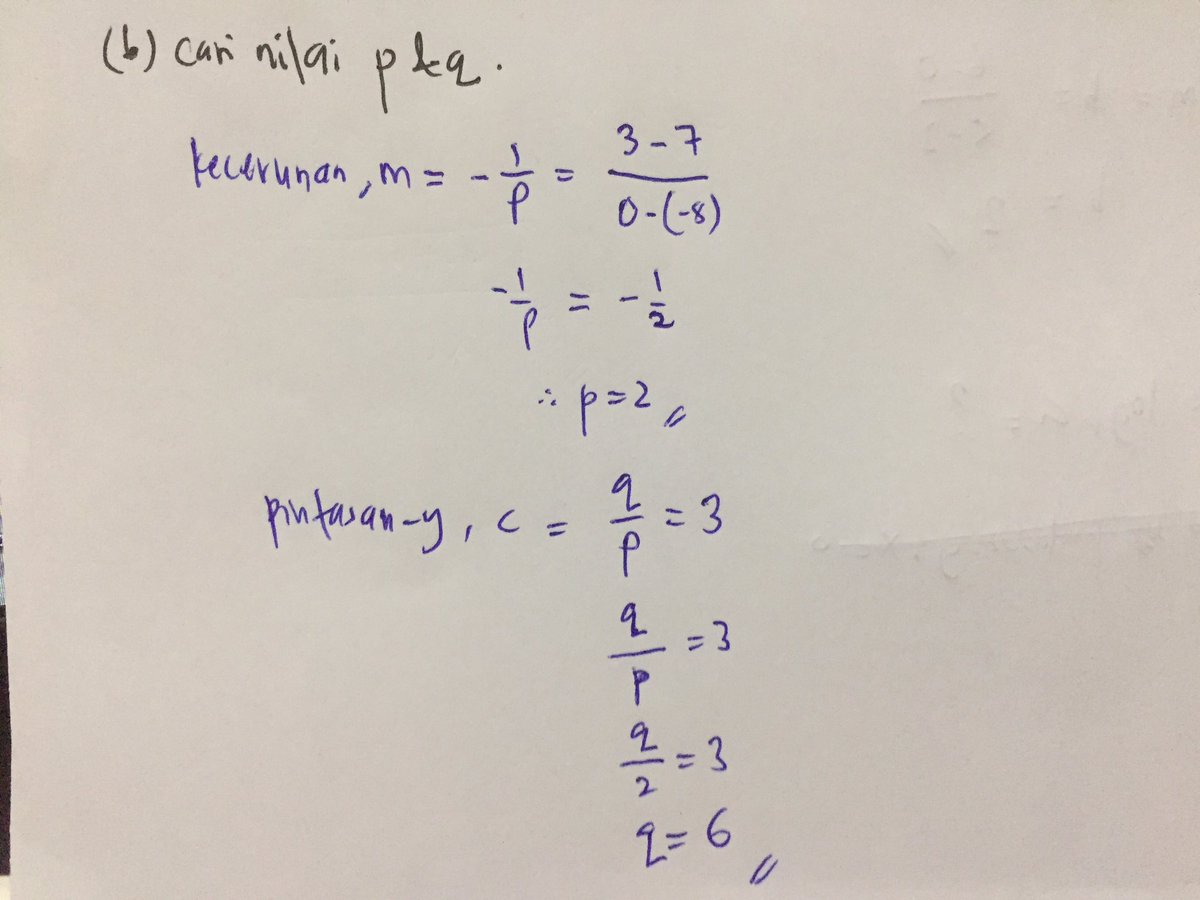 (b) cari nilai p & q.
kecerunan, m = - 1/p = 3-7 / 0-(-8)
- 1/p = - 1/2
∴ p=2 //
pintasan-y, c = q/p = 3
q/p = 3
q/2 = 3
q = 6 //